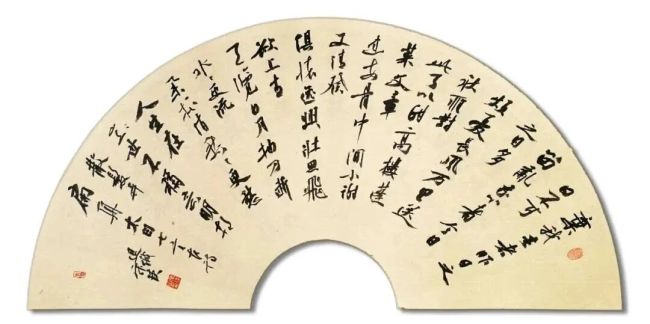 棄我去者昨日之
日不可
留亂我心者今日之
日多
煩憂長風萬里送
秋雁對
此可以酣高樓蓬
萊文章
建安骨中間小謝
又清發
俱懷逸興壯思飛
欲上青
天覽日月抽刀斷
水水更流
舉杯消愁愁更愁
人生在
世不稱意明朝
散髮弄
扁舟